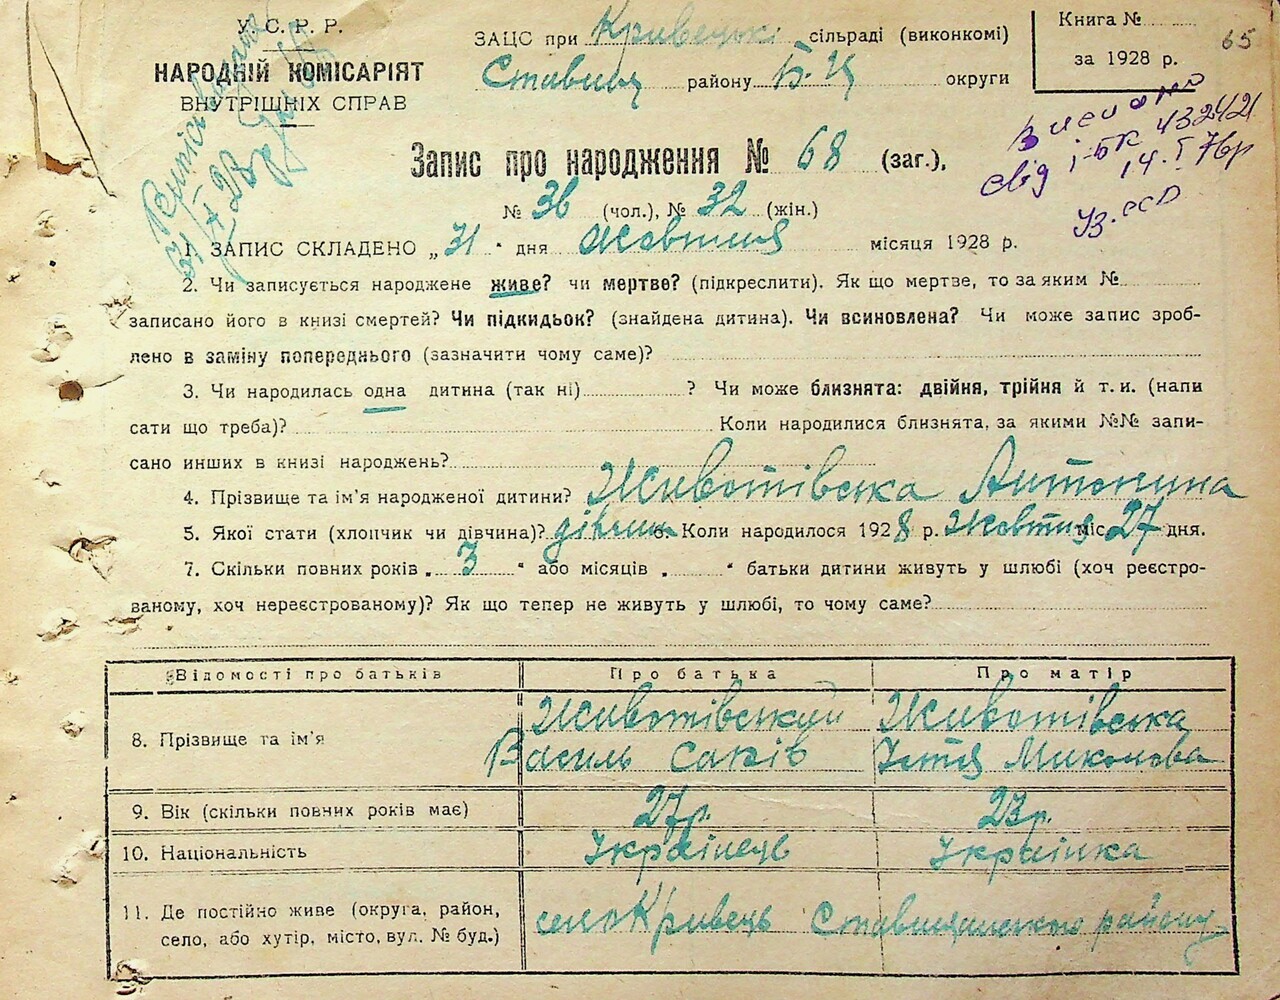 У. С. Р. Р.
НАРОДНІЙ КОМІСАРІЯТ
ВНУТРІШНІХ СПРАВ
ЗАЦС при Кривецькі сільраді (виконкомі)
Ставищ району Б-Ц округи
Книга №
за 1928 р.
65
свід 1-БК 432421
14. I 76р
31/X 28
Запис про народження № 68 (заг.),
№ 36 (чол.), № 32 (жін.)
1. ЗАПИС СКЛАДЕНО „31" дня Жовтня місяця 1928 р.
2. Чи записується народжене живе? чи мертве? (підкреслити). Як що мертве, то за яким №
записано його в книзі смертей? Чи підкидьок? (знайдена дитина). Чи всиновлена? Чи може запис зроб-
лено в заміну попереднього (зазначити чому саме)?
3. Чи народилась одна дитина (так ні) ? Чи може близнята: двійня, трійня й т. и. (напи
сати що треба)? Коли народилися близнята, за якими №№ запи-
сано инших в книзі народжень?
4. Прізвище та ім'я народженої дитини? Животівська Антонина
5. Якої стати (хлопчик чи дівчина)? дівчина 6. Коли народилося 1928 р. Жовтня міс. 27 дня.
7. Скільки повних років „ 3 " або місяців „ " батьки дитини живуть у шлюбі (хоч реєстро-
ваному, хоч нереєстрованому)? Як що тепер не живуть у шлюбі, то чому саме?
Відомості про батьків Про батька Про матір
8. Прізвище та ім'я Животівський Животівська
Василь Саків Устя Миколова
9. Вік (скільки повних років має) 27р. 23р.
10. Національність Українець Українка
11. Де постійно живе (округа, район,
село, або хутір, місто, вул. № буд.) село Кривець Ставищанського району